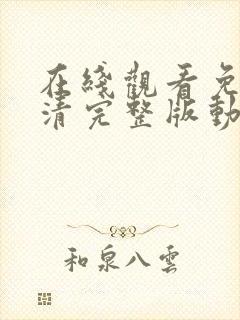 在綫觀看免
清完整版動
和泉八雲